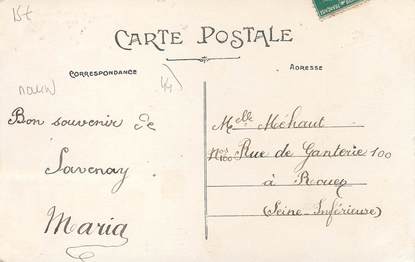 15t
CARTE POSTALE
CORRESPONDANCE
ADRESSE
Bon souvenir de
Savenay
Maria
Melle Méhaut
Nos 100 Rue de Ganterie 100
à Rouen
(Seine-Inférieure)